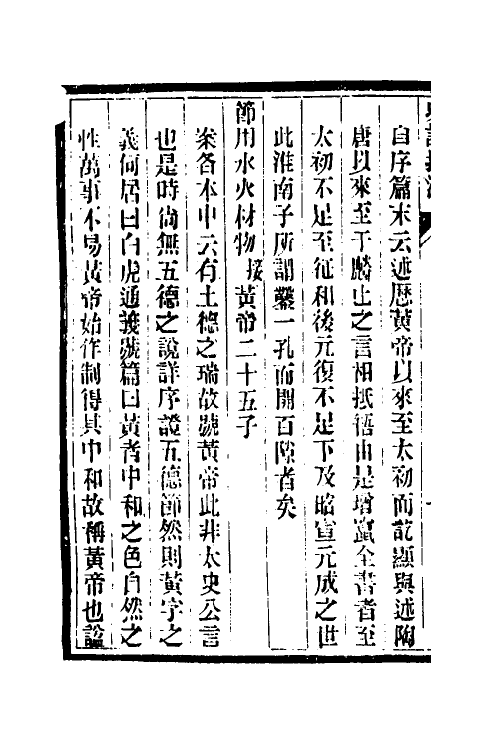 自序篇末云述歷黃帝以來至太初而訖顯與述陶
唐以來至于麟止之言相抵牾由是增竄全書者至
太初不足至征和後元復不足下及昭宣元成之世
此淮南子所謂鑿一孔而開百隙者矣
節用水火材物 接黃帝二十五子
案各本中云有土德之瑞故號黃帝此非太史公言
也是時尚無五德之說詳序證五德節然則黃字之
義何居曰白虎通義號篇曰黃者中和之色自然之
性萬事不易黃帝始作制得其中和故稱黃帝也論